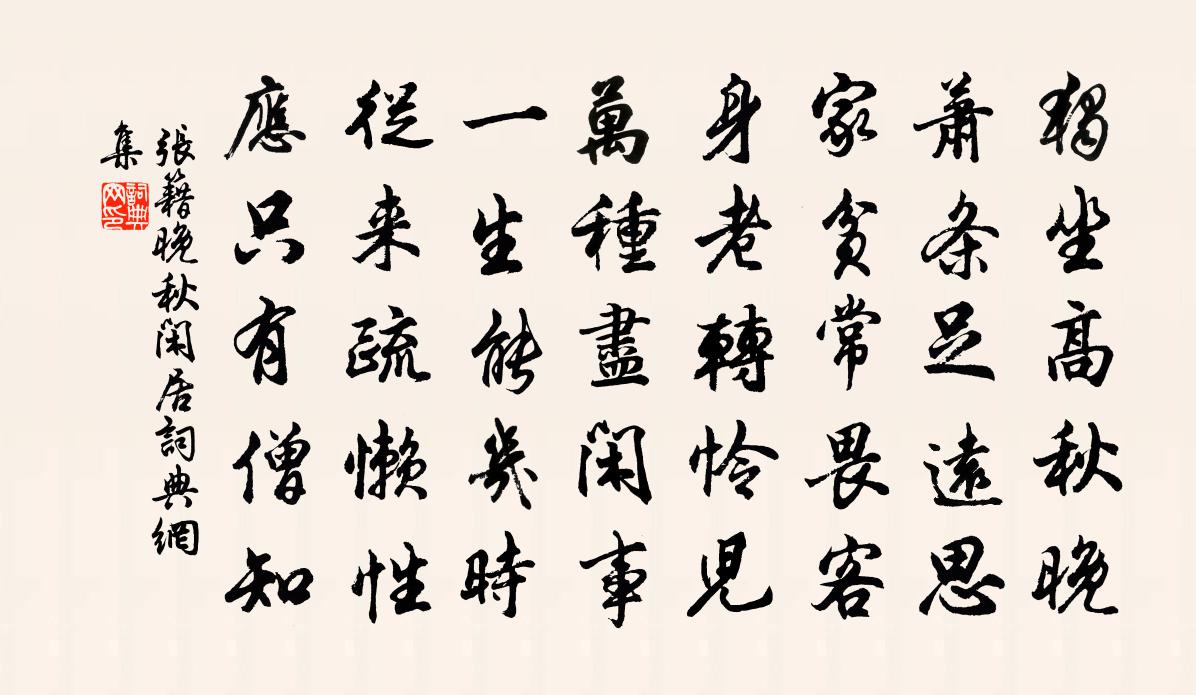 獨坐髙秋晚
蕭条足遠思
家貧常畏客
身老轉憐兒
萬種盡閑事
一生能幾時
從来疏懶性
應只有僧知
張籍晚秋閑居詞典網
集
詞典
网印